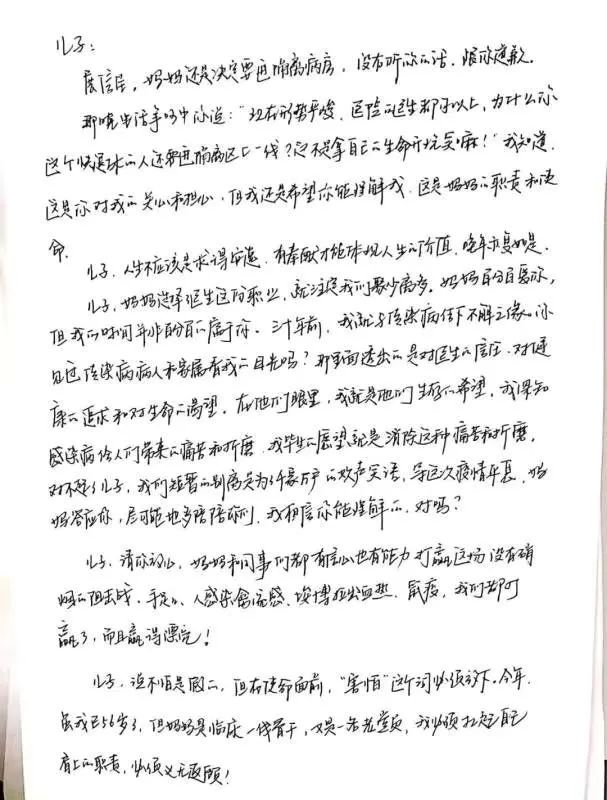 儿子：
展信佳，妈妈还是决定要进隔离病房，没有听你的话，跟你道歉。
那晚电话争吵中你说："现在形势严峻，医院的医生都可以上，为什么你
这个快退休的人还要进隔离区上一线？这不是拿自己的生命开玩笑嘛！"我知道，
这是你对我的关心和担心，但我还是希望你能理解我，这是妈妈的职责和使
命。
儿子，人生不应该是求得安逸，有奉献才能体现人生的价值，晚年亦复如是。
儿子，妈妈选择医生这份职业，就注定我们聚少离多。妈妈百分百爱你，
但我的时间并非百分百的属于你。三十年前，我就与传染病结下不解之缘。你
见过传染病病人和家属看我的目光吗？那里面透出的是对医生的信任，对健
康的追求和对生命的渴望。在他们眼里，我就是他们生存的希望，我深知
感染病给人们带来的痛苦和折磨，我毕生的愿望就是消除这种痛苦和折磨。
对不起了儿子，我们短暂的别离是为了千家万户的欢声笑语，等这次疫情平复，妈
妈答应你，尽可能地多陪陪你们，我相信你能理解的，对吗？
儿子，请你放心，妈妈和同事们都有信心也有能力打赢这场没有硝
烟的阻击战。手足口、人感染禽流感、埃博拉出血热、鼠疫，我们都打
赢了，而且赢得漂亮！
儿子，说不怕是假的，但在使命面前，"害怕"这个词必须放下。今年
虽我已56岁了，但妈妈是临床一线骨干，又是一名老党员，我必须扛起自己
肩上的职责，必须义无返顾！